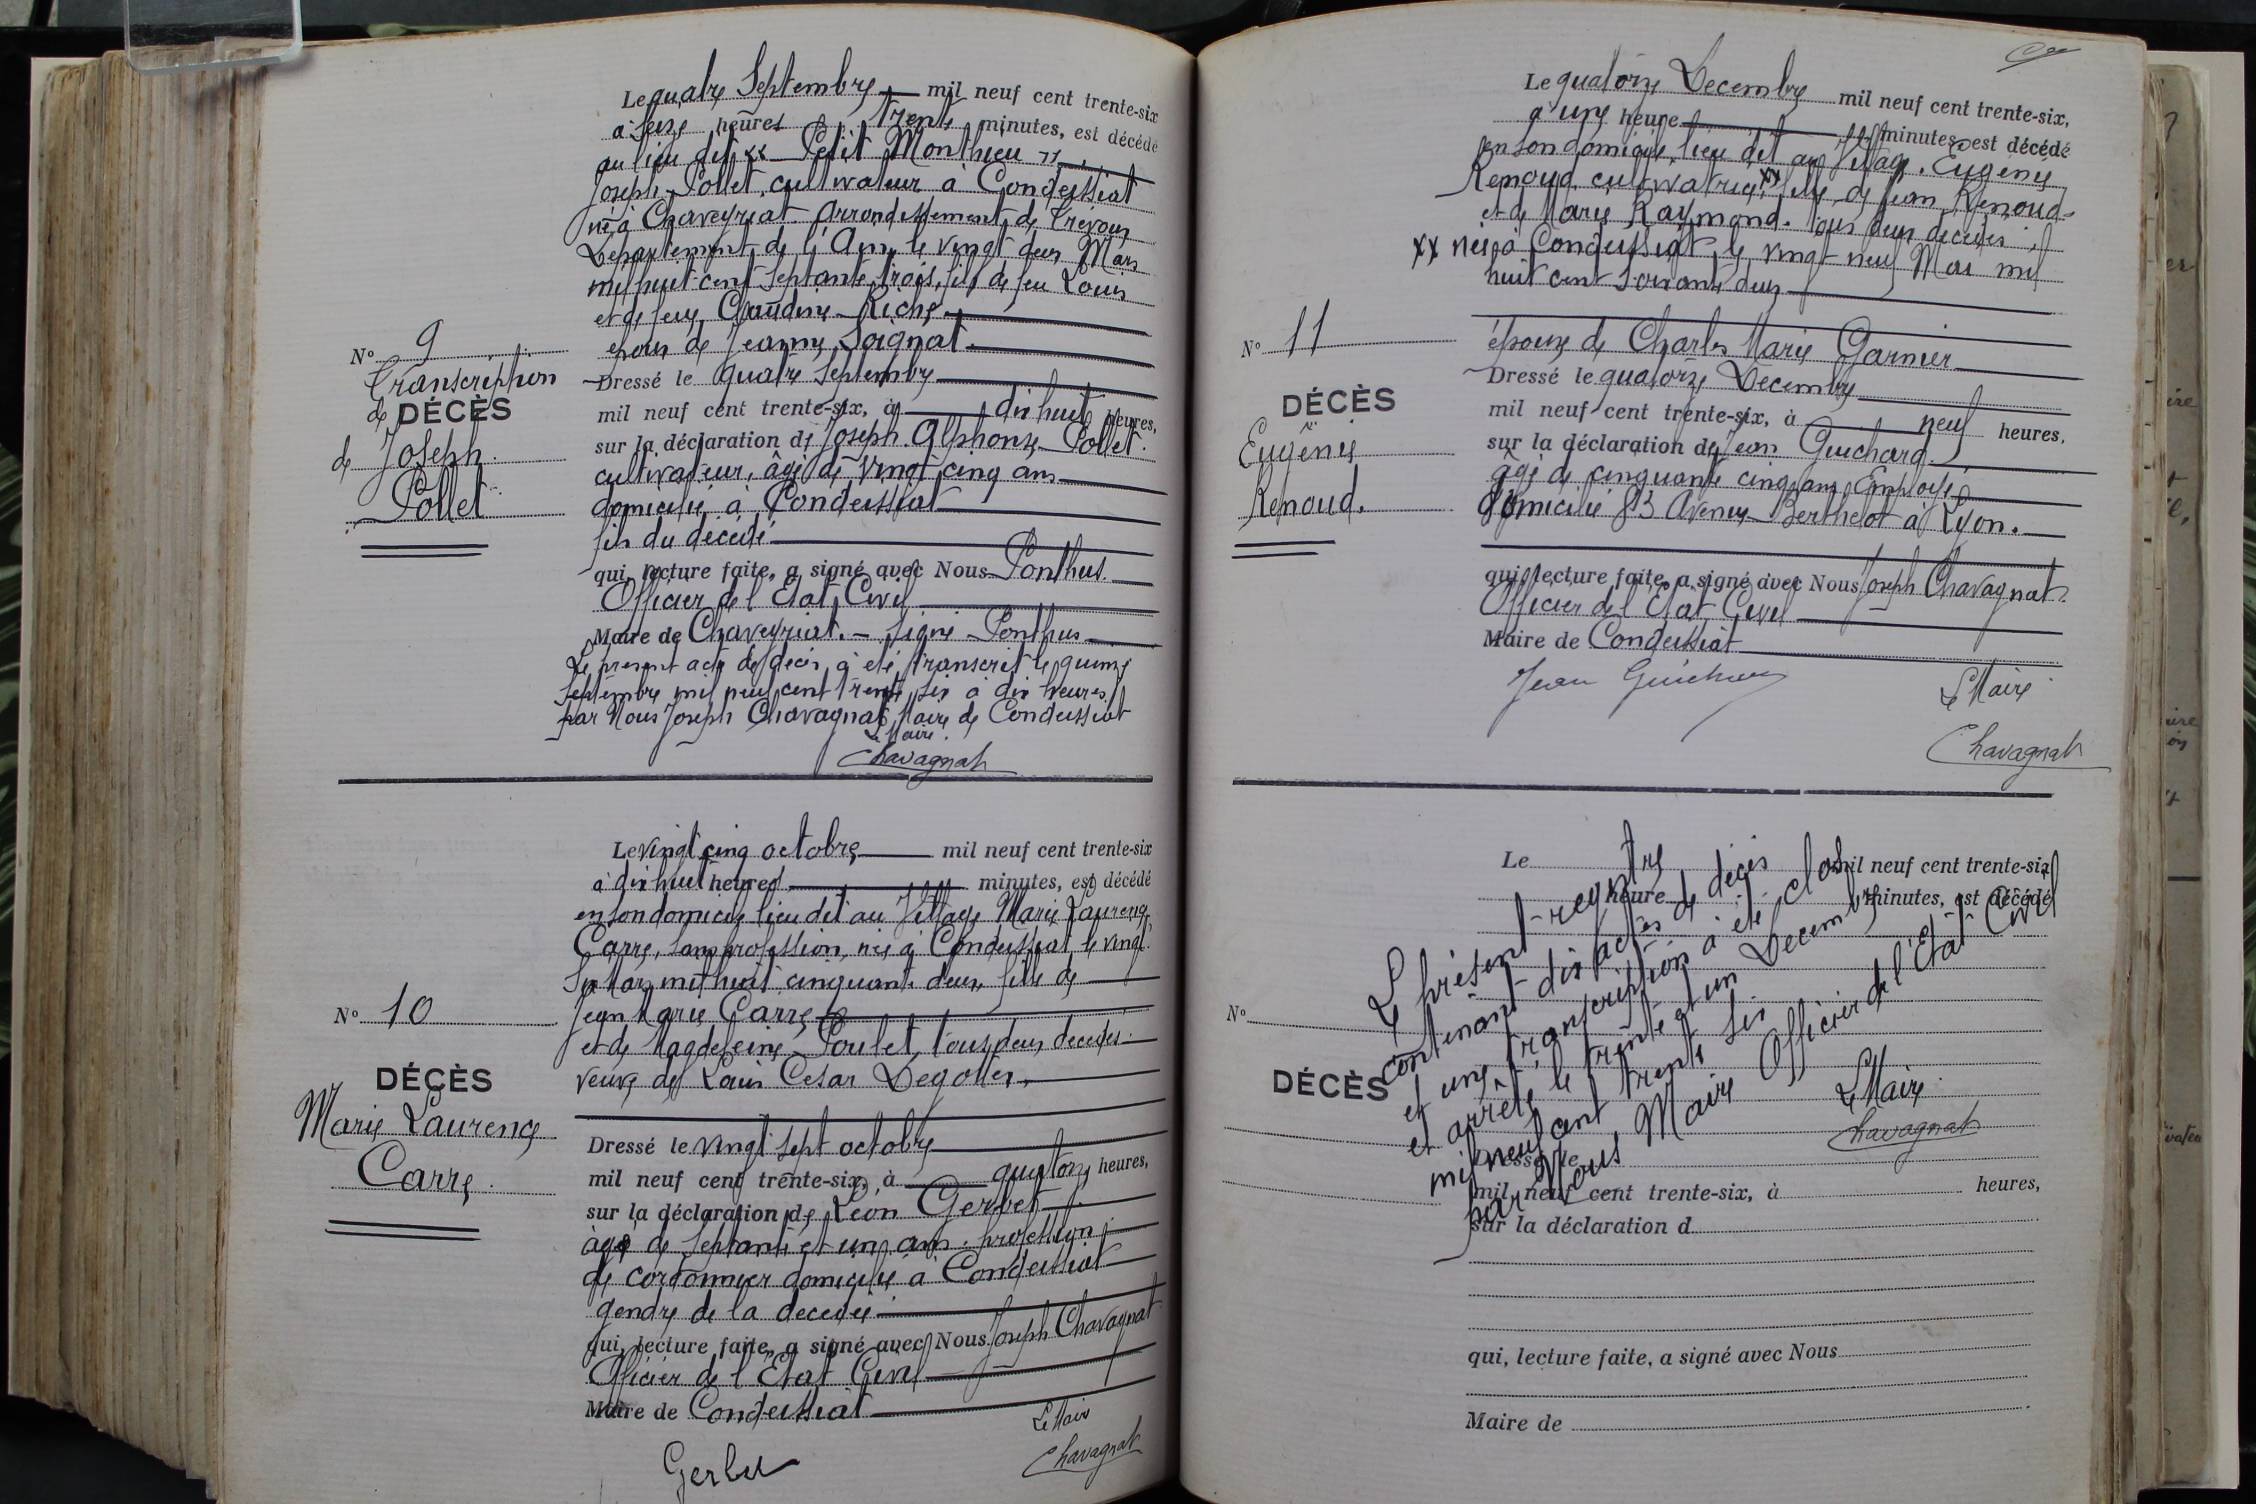 Le quatre Septembre mil neuf cent trente-six
à seize heures trente minutes, est décédé
au lieu dit xx Petit Monthieu
Joseph Pollet, cultivateur à Condeissiat
né à Chaveyriat Arrondissement de Trévoux
Département de l'Ain le vingt deux Mars
mil huit cent septante trois, fils de feu Louis
et de feue Claudine Riche
époux de Jeanne Soignat.
N° 9
Transcription
de DÉCÈS
de Joseph
Pollet
Dressé le quatre Septembre
mil neuf cent trente-six, à dix huit heures,
sur la déclaration de Joseph Alphonse Pollet.
cultivateur, âgé de vingt cinq ans
domicilié à Condeissiat
fils du décédé
qui, lecture faite, a signé avec Nous Ponthus.
Officier de l'Etat Civil
Maire de Chaveyriat. — signé Ponthus
Le présent acte de décès a été transcrit le quinze
Septembre mil neuf cent trente six à dix heures
par Nous Joseph Chavagnat, Maire de Condeissiat
Le Maire.
Chavagnat
Le vingt cinq octobre mil neuf cent trente-six
à dix huit heures minutes, est décédé
en son domicile lieu dit au Village Marie Laurence
Carre, sans profession, née à Condeissiat, le vingt
mil huit cinquante deux, fille de
Jean Marie Carre
et de Magdeleine Poulet, tous deux décédés.
veuve de Louis Cesar Degoller.
N° 10
DÉCÈS
Marie Laurence
Carre.
Dressé le vingt sept octobre
mil neuf cent trente-six, à quatorze heures,
sur la déclaration de Léon Gerbet
âgé de septante et un ans, profession
de cordonnier domicilié à Condeissiat
gendre de la décédée
qui, lecture faite, a signé avec Nous Joseph Chavagnat
Officier de l'Etat Civil
Maire de Condeissiat
Le Maire
Chavagnat
Le quatorze Decembre mil neuf cent trente-six,
à une heure minutes, est décédé
en son domicile, lieu dit au Village. Eugénie
Renoud, cultivatrice xx fille de Jean Renoud
et de Marie Raymond. tous deux décédés
xx née à Condeissiat, le vingt neuf Mai mil
huit cent soixante deux
épouse de Charles Marie Garnier
N° 11
DÉCÈS
Eugénie
Renoud.
Dressé le quatorze Decembre
mil neuf cent trente-six, à neuf heures,
sur la déclaration de Jean Guichard.
âgé de cinquante cinq ans, Employé
domicilié 83 Avenue Berthelot à Lyon.
qui, lecture faite, a signé avec Nous Joseph Chavagnat.
Officier de l'Etat Civil
Maire de Condeissiat
Jean Guichard
Le Maire
Chavagnat
Le mil neuf cent trente-six,
heure minutes, est décédé
Le présent registre
contenant dix actes de décès
et une transcription a été clos
et arrêté le trente et un Decembre
mil neuf cent trente six
par Nous Maire Officier de l'Etat Civil
Le Maire.
Chavagnat
N°
DÉCÈS
Dressé le
mil neuf cent trente-six, à heures,
sur la déclaration d
qui, lecture faite, a signé avec Nous
Maire de